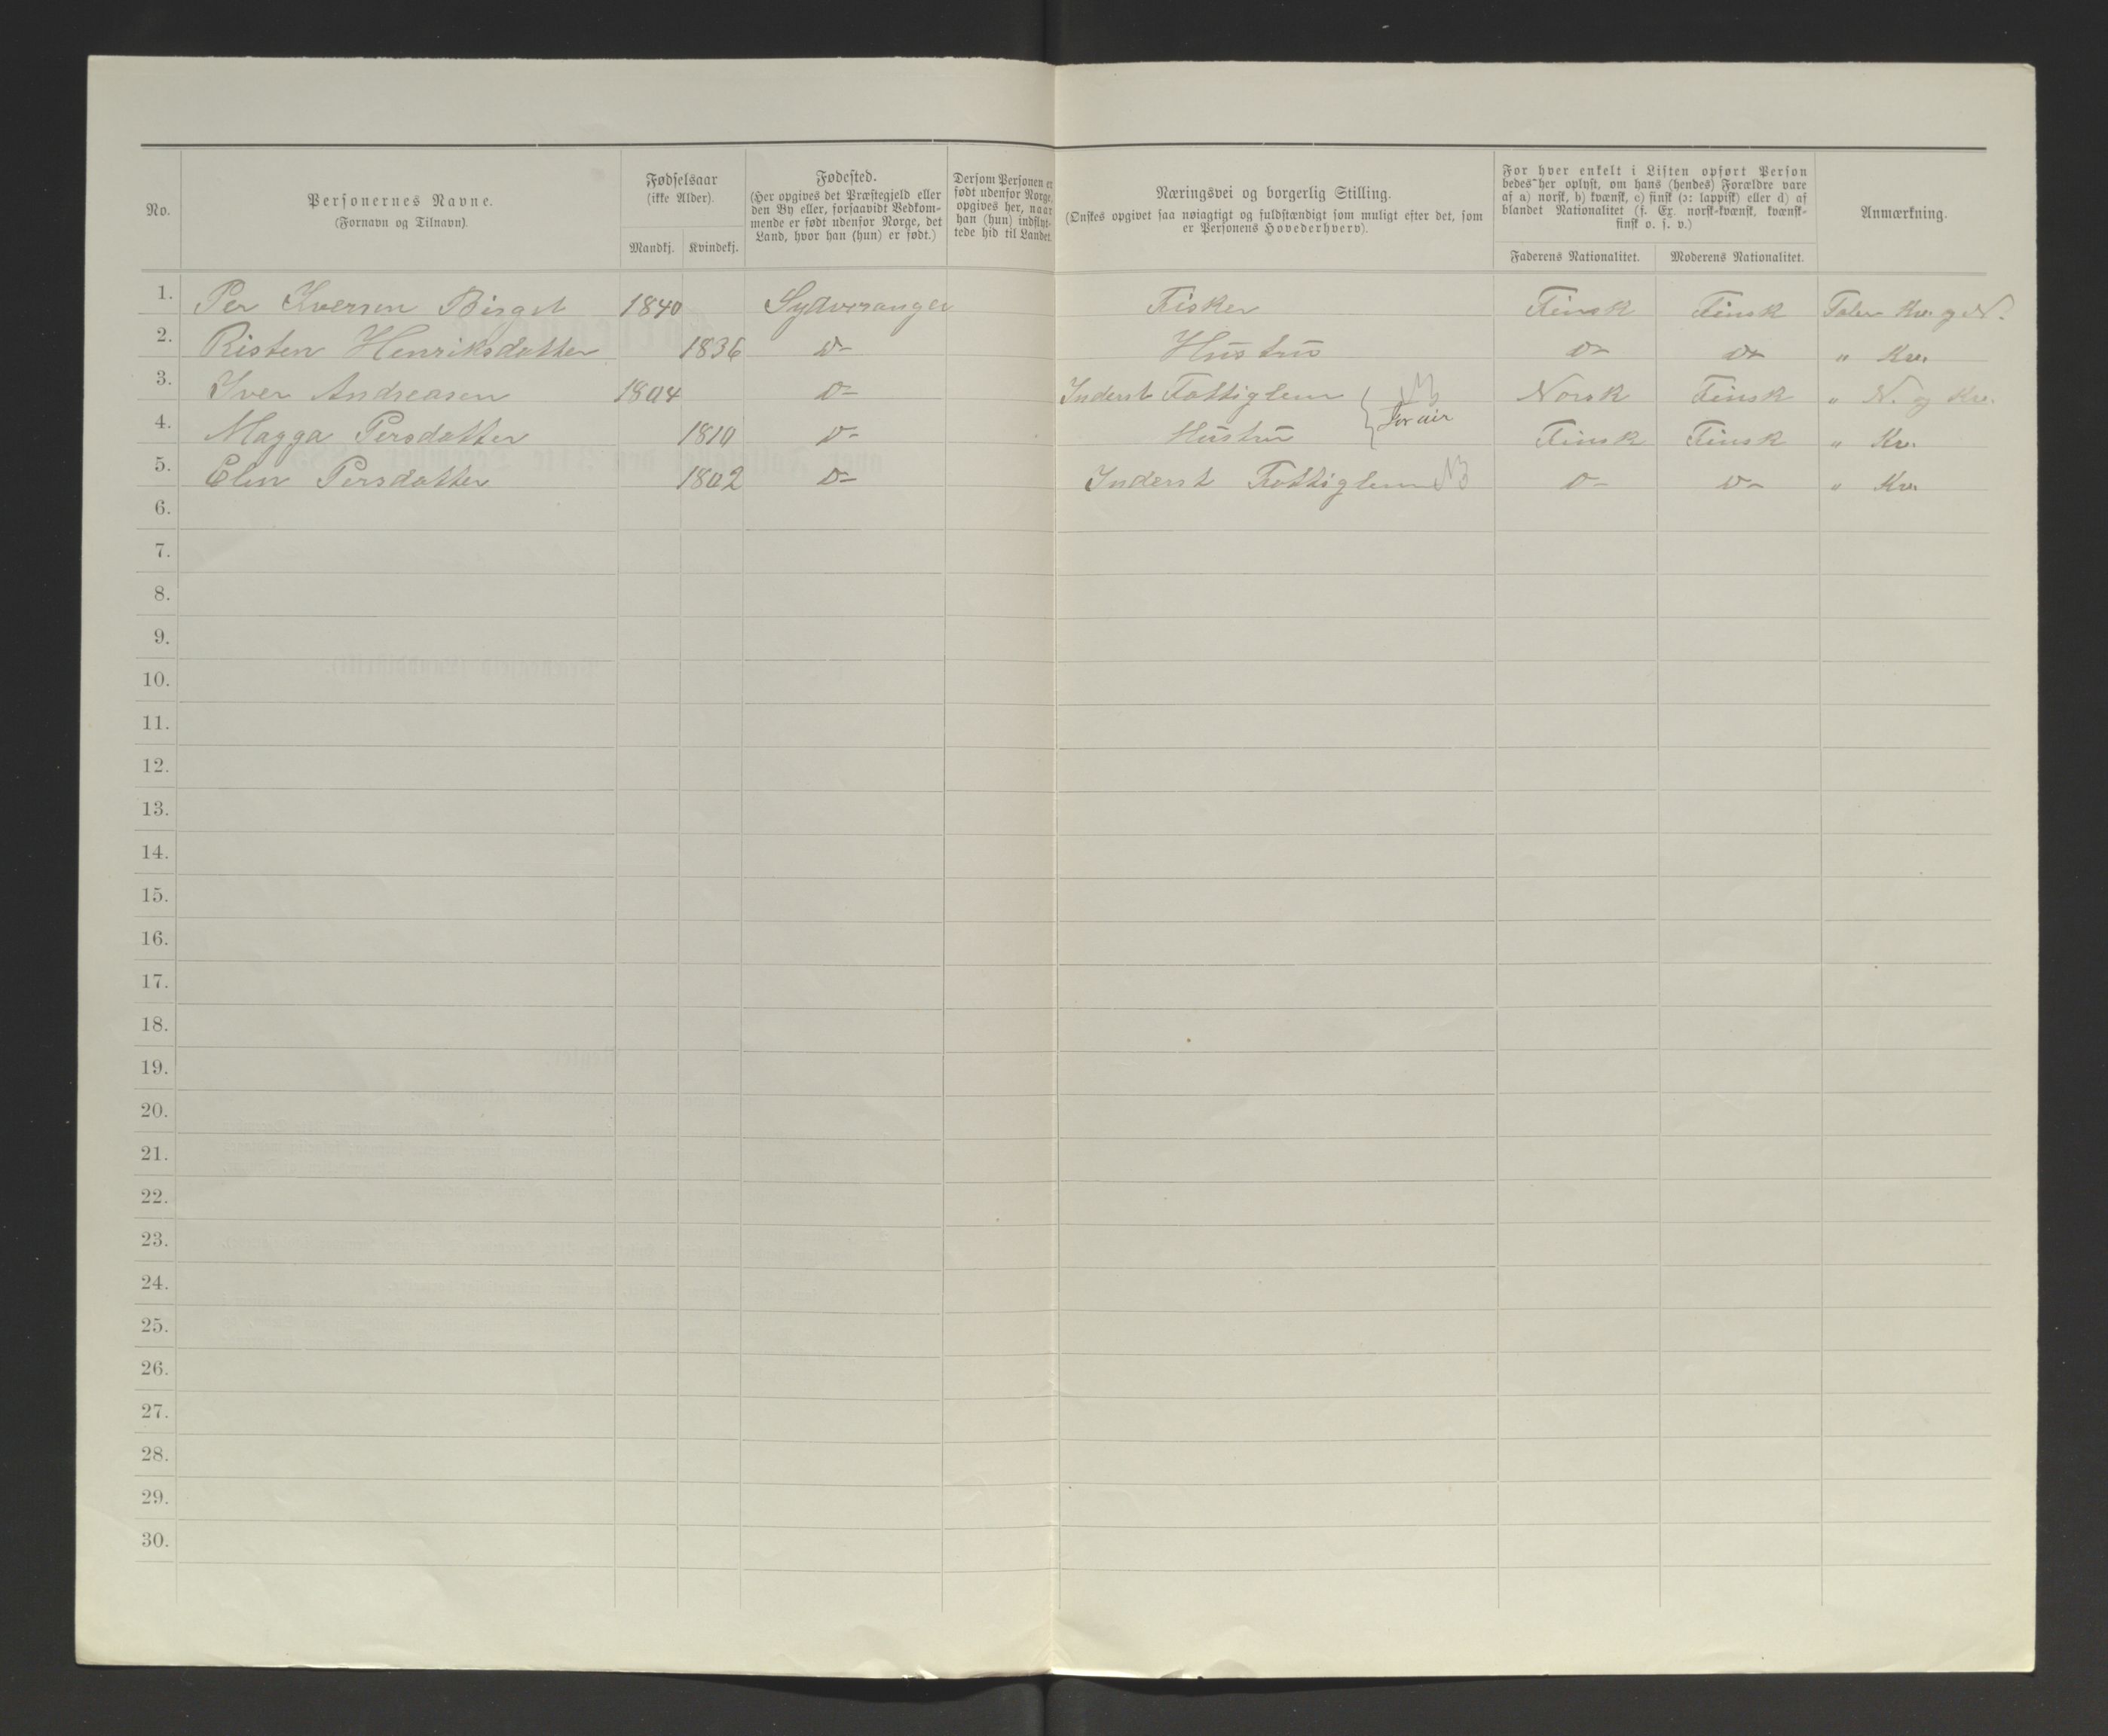 No.
Personernes Navne.
(Fornavn og Tilnavn).
Fødselsaar
(ikke Alder).
Mandkj. Kvindekj.
Fødested.
(Her opgives det Præstegjeld eller
den By eller, forsaavidt Vedkom-
mende er født udenfor Norge, det
Land, hvor han (hun) er født.)
Dersom Personen er
født udenfor Norge,
opgives her, naar
han (hun) indflyt-
tede hid til Landet.
Næringsvei og borgerlig Stilling.
(Ønskes opgivet saa nøiagtigt og fuldstændigt som muligt efter det, som
er Personens Hovederhverv).
For hver enkelt i Listen opført Person
bedes her oplyst, om hans (hendes) Forældre vare
af a) norsk, b) kvænsk, c) finsk (ɔ: lappisk) eller d) af
blandet Nationalitet (f. Ex. norsk-kvænsk, kvænsk-
finsk o. s. v.)
Faderens Nationalitet. Moderens Nationalitet.
Anmærkning.
1. Per Iversen 1840 Sydvaranger Fisker Finsk Finsk Taler Kv. og N.
2. Risten Henriksdatter 1836 D- Hustru D- D- " Kv.
3. Iver Andreasen 1804 D- Inderst Fattiglem Norsk Finsk " N. og Kv.
4. Magga Persdatter 1810 D- Hustru Finsk Finsk " Kv.
5. Elen Persdatter 1802 D- Inderst Fattiglem D- D- " Kv.
6.
7.
8.
9.
10.
11.
12.
13.
14.
15.
16.
17.
18.
19.
20.
21.
22.
23.
24.
25.
26.
27.
28.
29.
30.